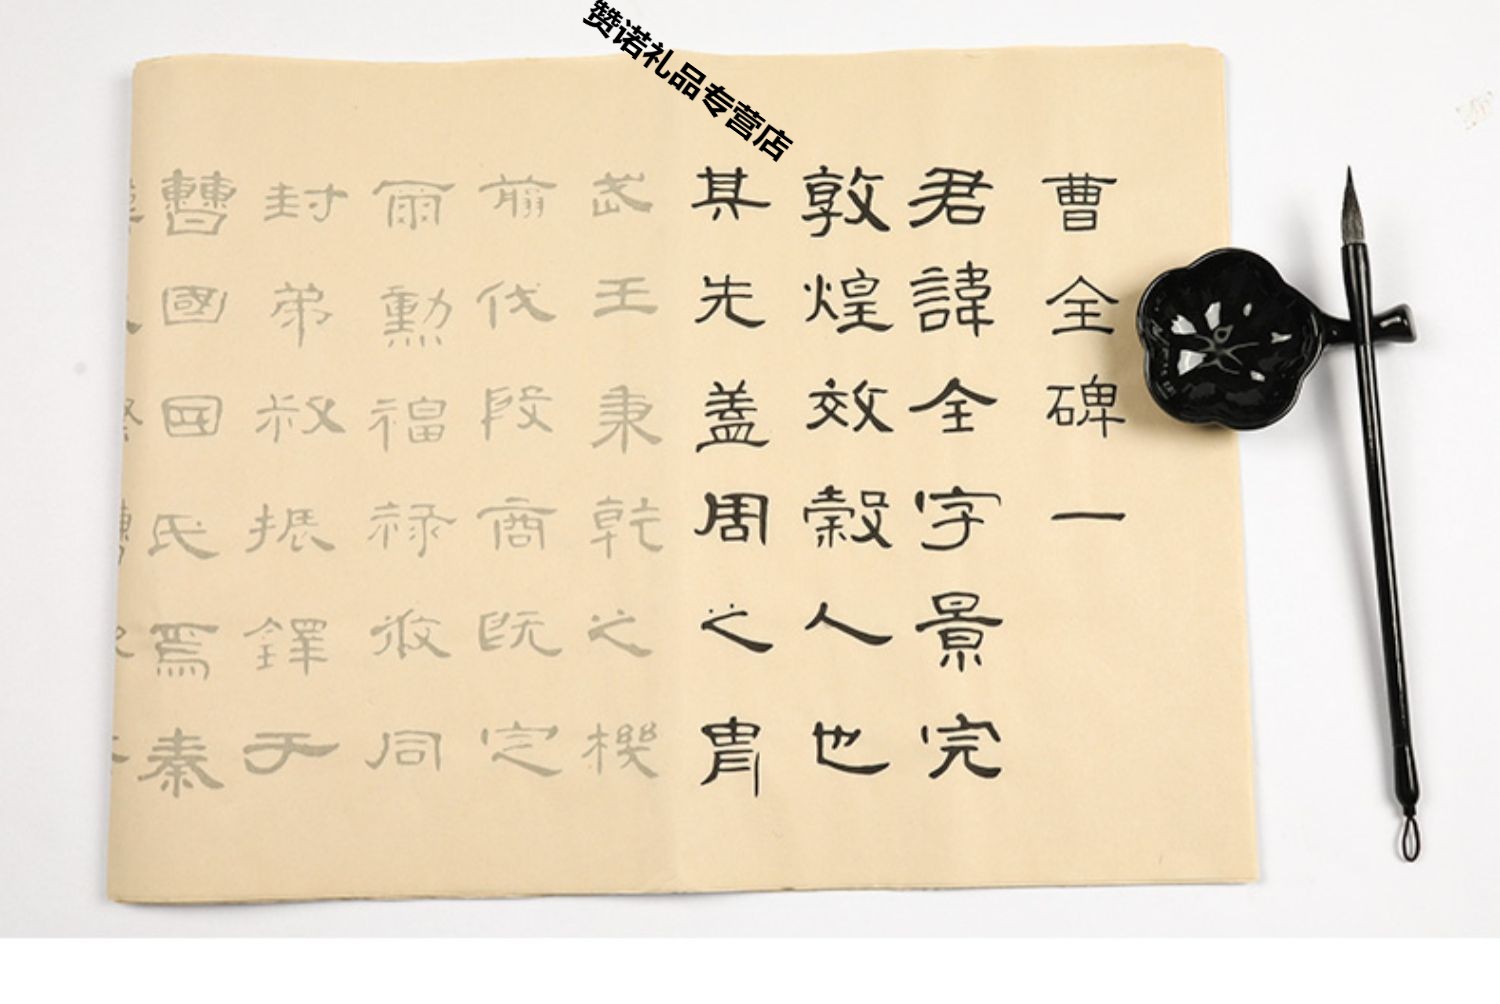 赞诺礼品专营店
曹全碑一
君諱全字景完
敦煌效穀人也
其先蓋周之胄
武王秉乾之機
翦伐殷商既定
爾勲福祿攸同
封弟叔振鐸于
曹國國氏焉秦